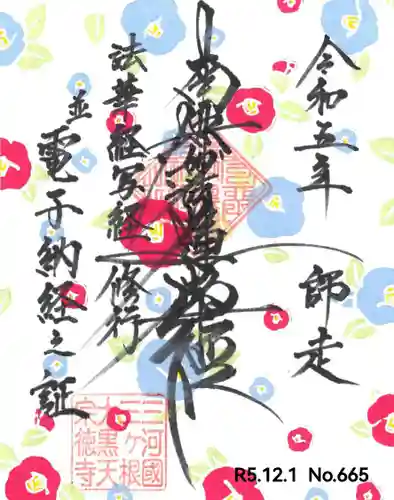 令和五年
師走
南無妙法蓮華経
法華経写経修行
並電子納経之証
三河國
三ヶ根
大黒天
宗徳寺
R5.12.1 No.665